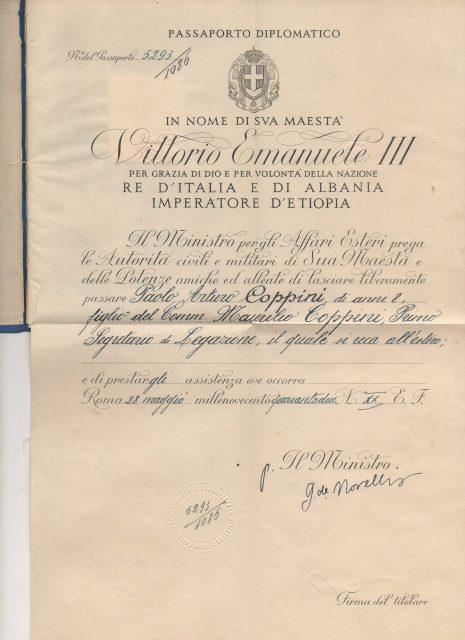 PASSAPORTO DIPLOMATICO
No. del Passaporto 5293/1086
IN NOME DI SVA MAESTA'
Vittorio Emanuele III
PER GRAZIA DI DIO E PER VOLONTA' DELLA NAZIONE
RE D'ITALIA E DI ALBANIA
IMPERATORE D'ETIOPIA
Il Ministro per gli Affari Esteri prega
le Autorità civili e militari di Sua Maestà e
delle Potenze amiche ed alleate di lasciare liberamente
passare Paolo Arturo Coppini, di anni 8,
figlio del Comm. Maurilio Coppini, Primo
Segretario di Legazione, il quale si reca all'estero;
e di prestargli assistenza ove occorra
Roma 28 maggio millenovecentoquarantadue A. XX E. F.
p. Il Ministro.
G. de
5293/1086
Firma del titolare